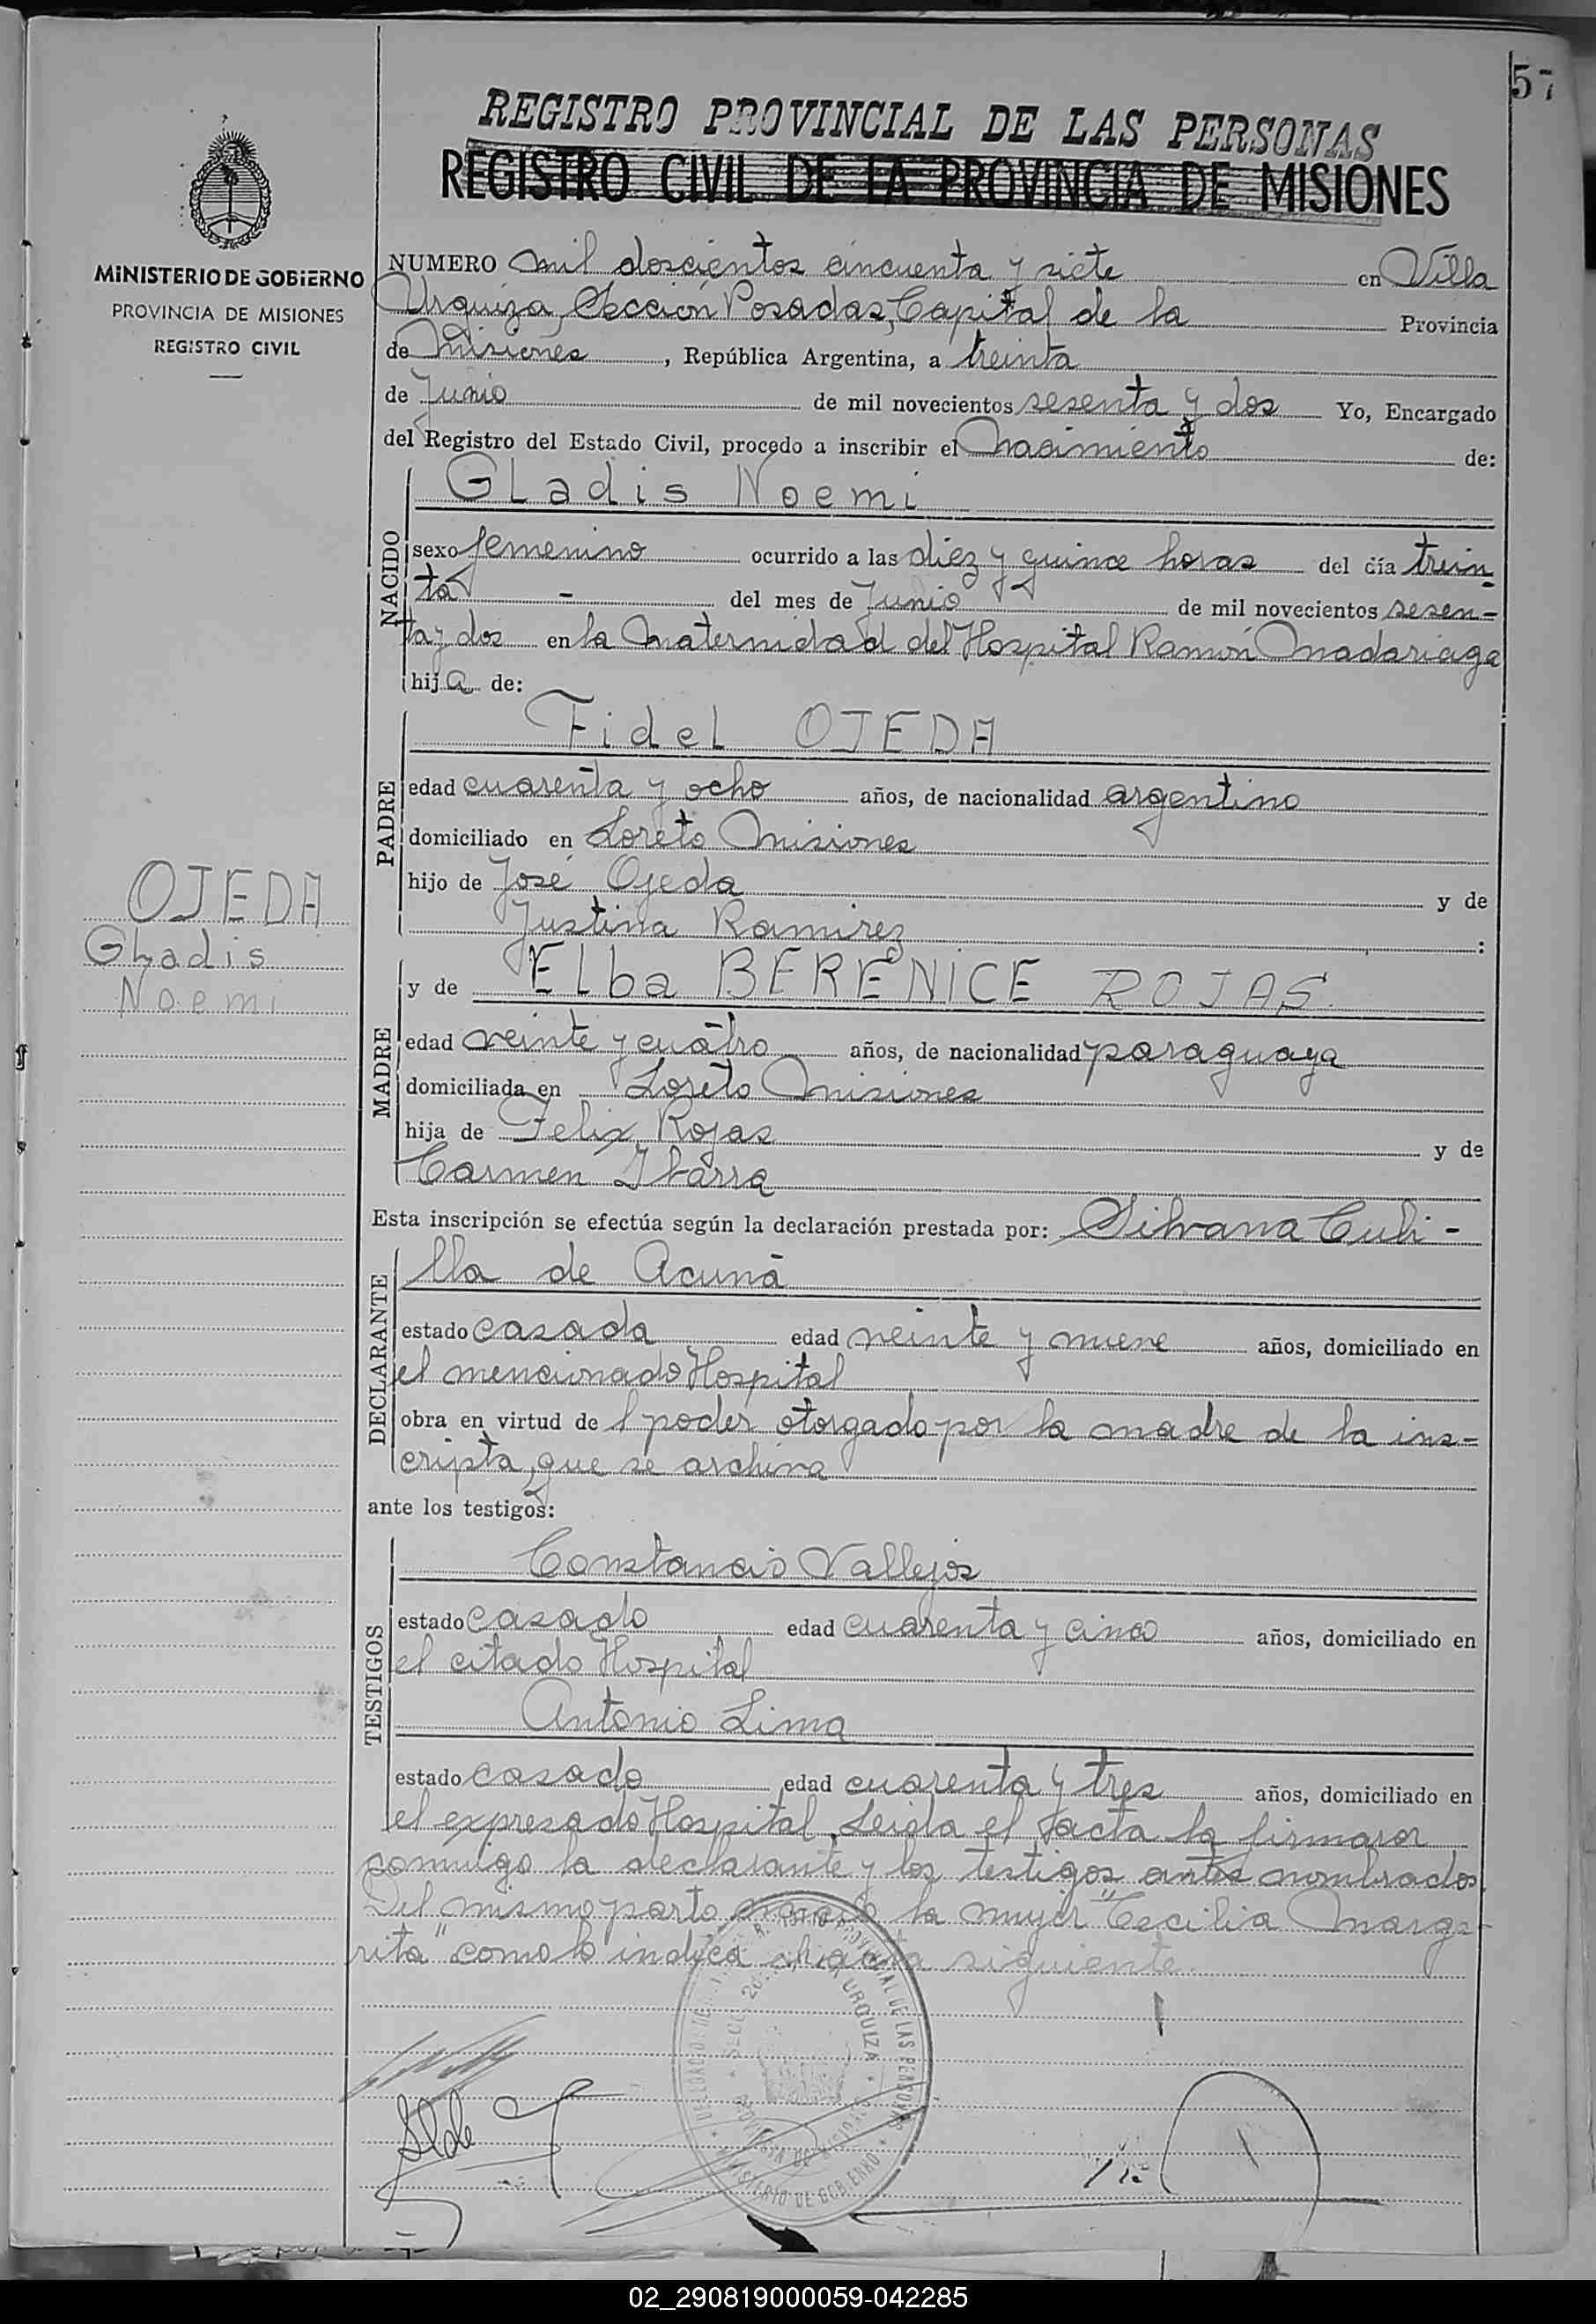 57
REGISTRO PROVINCIAL DE LAS PERSONAS
REGISTRO CIVIL DE LA PROVINCIA DE MISIONES
MINISTERIO DE GOBIERNO
PROVINCIA DE MISIONES
REGISTRO CIVIL
OJEDA
Gladis
Noemi
NUMERO mil doscientos cincuenta y siete en Villa
Urquiza, Sección Posadas, Capital de la Provincia
de Misiones, República Argentina, a treinta
de Junio de mil novecientos sesenta y dos Yo, Encargado
del Registro del Estado Civil, procedo a inscribir el Nacimiento de:
NACIDO
Gladis Noemi
sexo femenino ocurrido a las diez y quince horas del día trein-
ta - del mes de Junio de mil novecientos sesen-
ta y dos en la Maternidad del Hospital Ramón Madariaga
hija de:
PADRE
Fidel OJEDA
edad cuarenta y ocho años, de nacionalidad argentino
domiciliado en Loreto Misiones
hijo de José Ojeda y de
Justina Ramirez :
MADRE
y de Elba BERENICE ROJAS
edad veinte y cuatro años, de nacionalidad paraguaya
domiciliada en Loreto Misiones
hija de Felix Rojas y de
Carmen Ibarra
Esta inscripción se efectúa según la declaración prestada por: Silvana Cubi-
DECLARANTE
lla de Acuña
estado casada edad veinte y nueve años, domiciliado en
el mencionado Hospital
obra en virtud de l poder otorgado por la madre de la ins-
cripta, que se archiva
ante los testigos:
TESTIGOS
Constancio Vallejos
estado casado edad cuarenta y cinco años, domiciliado en
el citado Hospital
Antonio Lima
estado casado edad cuarenta y tres años, domiciliado en
el expresado Hospital. Leida el acta la firmaron
conmigo la declarante y los testigos antes nombrados.
Del mismo parto nació la mujer "Cecilia Marga-
rita" como lo indica el acta siguiente.
URQUIZA
MINISTERIO DE GOBIERNO
02_290819000059-042285